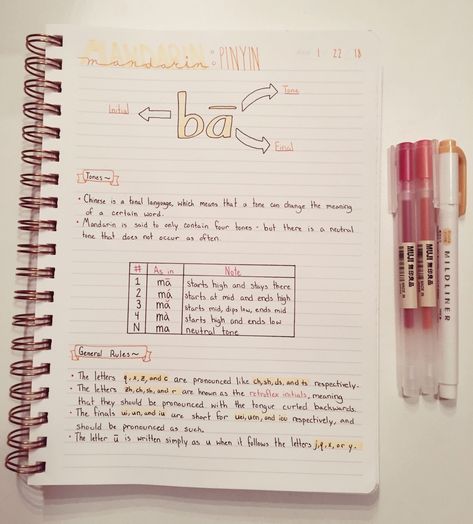 MANDARIN
mandarin : PINYIN
1 22 18
Tone
Initial
bā
Final
Tones~
• Chinese is a tonal language, which means that a tone can change the meaning
of a certain word.
• Mandarin is said to only contain four tones - but there is a neutral
tone that does not occur as often.
# As in Note
1 mā starts high and stays there
2 má starts at mid and ends high
3 mǎ starts mid, dips low, ends mid
4 mà starts high and ends low
N ma neutral tone
General Rules~
• The letters q, x, z, and c are pronounced like ch, sh, ds, and ts respectively.
• The letters zh, ch, sh, and r are known as the retroflex initials, meaning
that they should be pronounced with the tongue curled backwards.
• The finals ui, un, and iu are short for uei, uen, and iou respectively, and
should be pronounced as such.
• The letter ü is written simply as u when it follows the letters j, q, x, or y.
MUJI 無印良品
MUJI 無印良品
MILDLINER